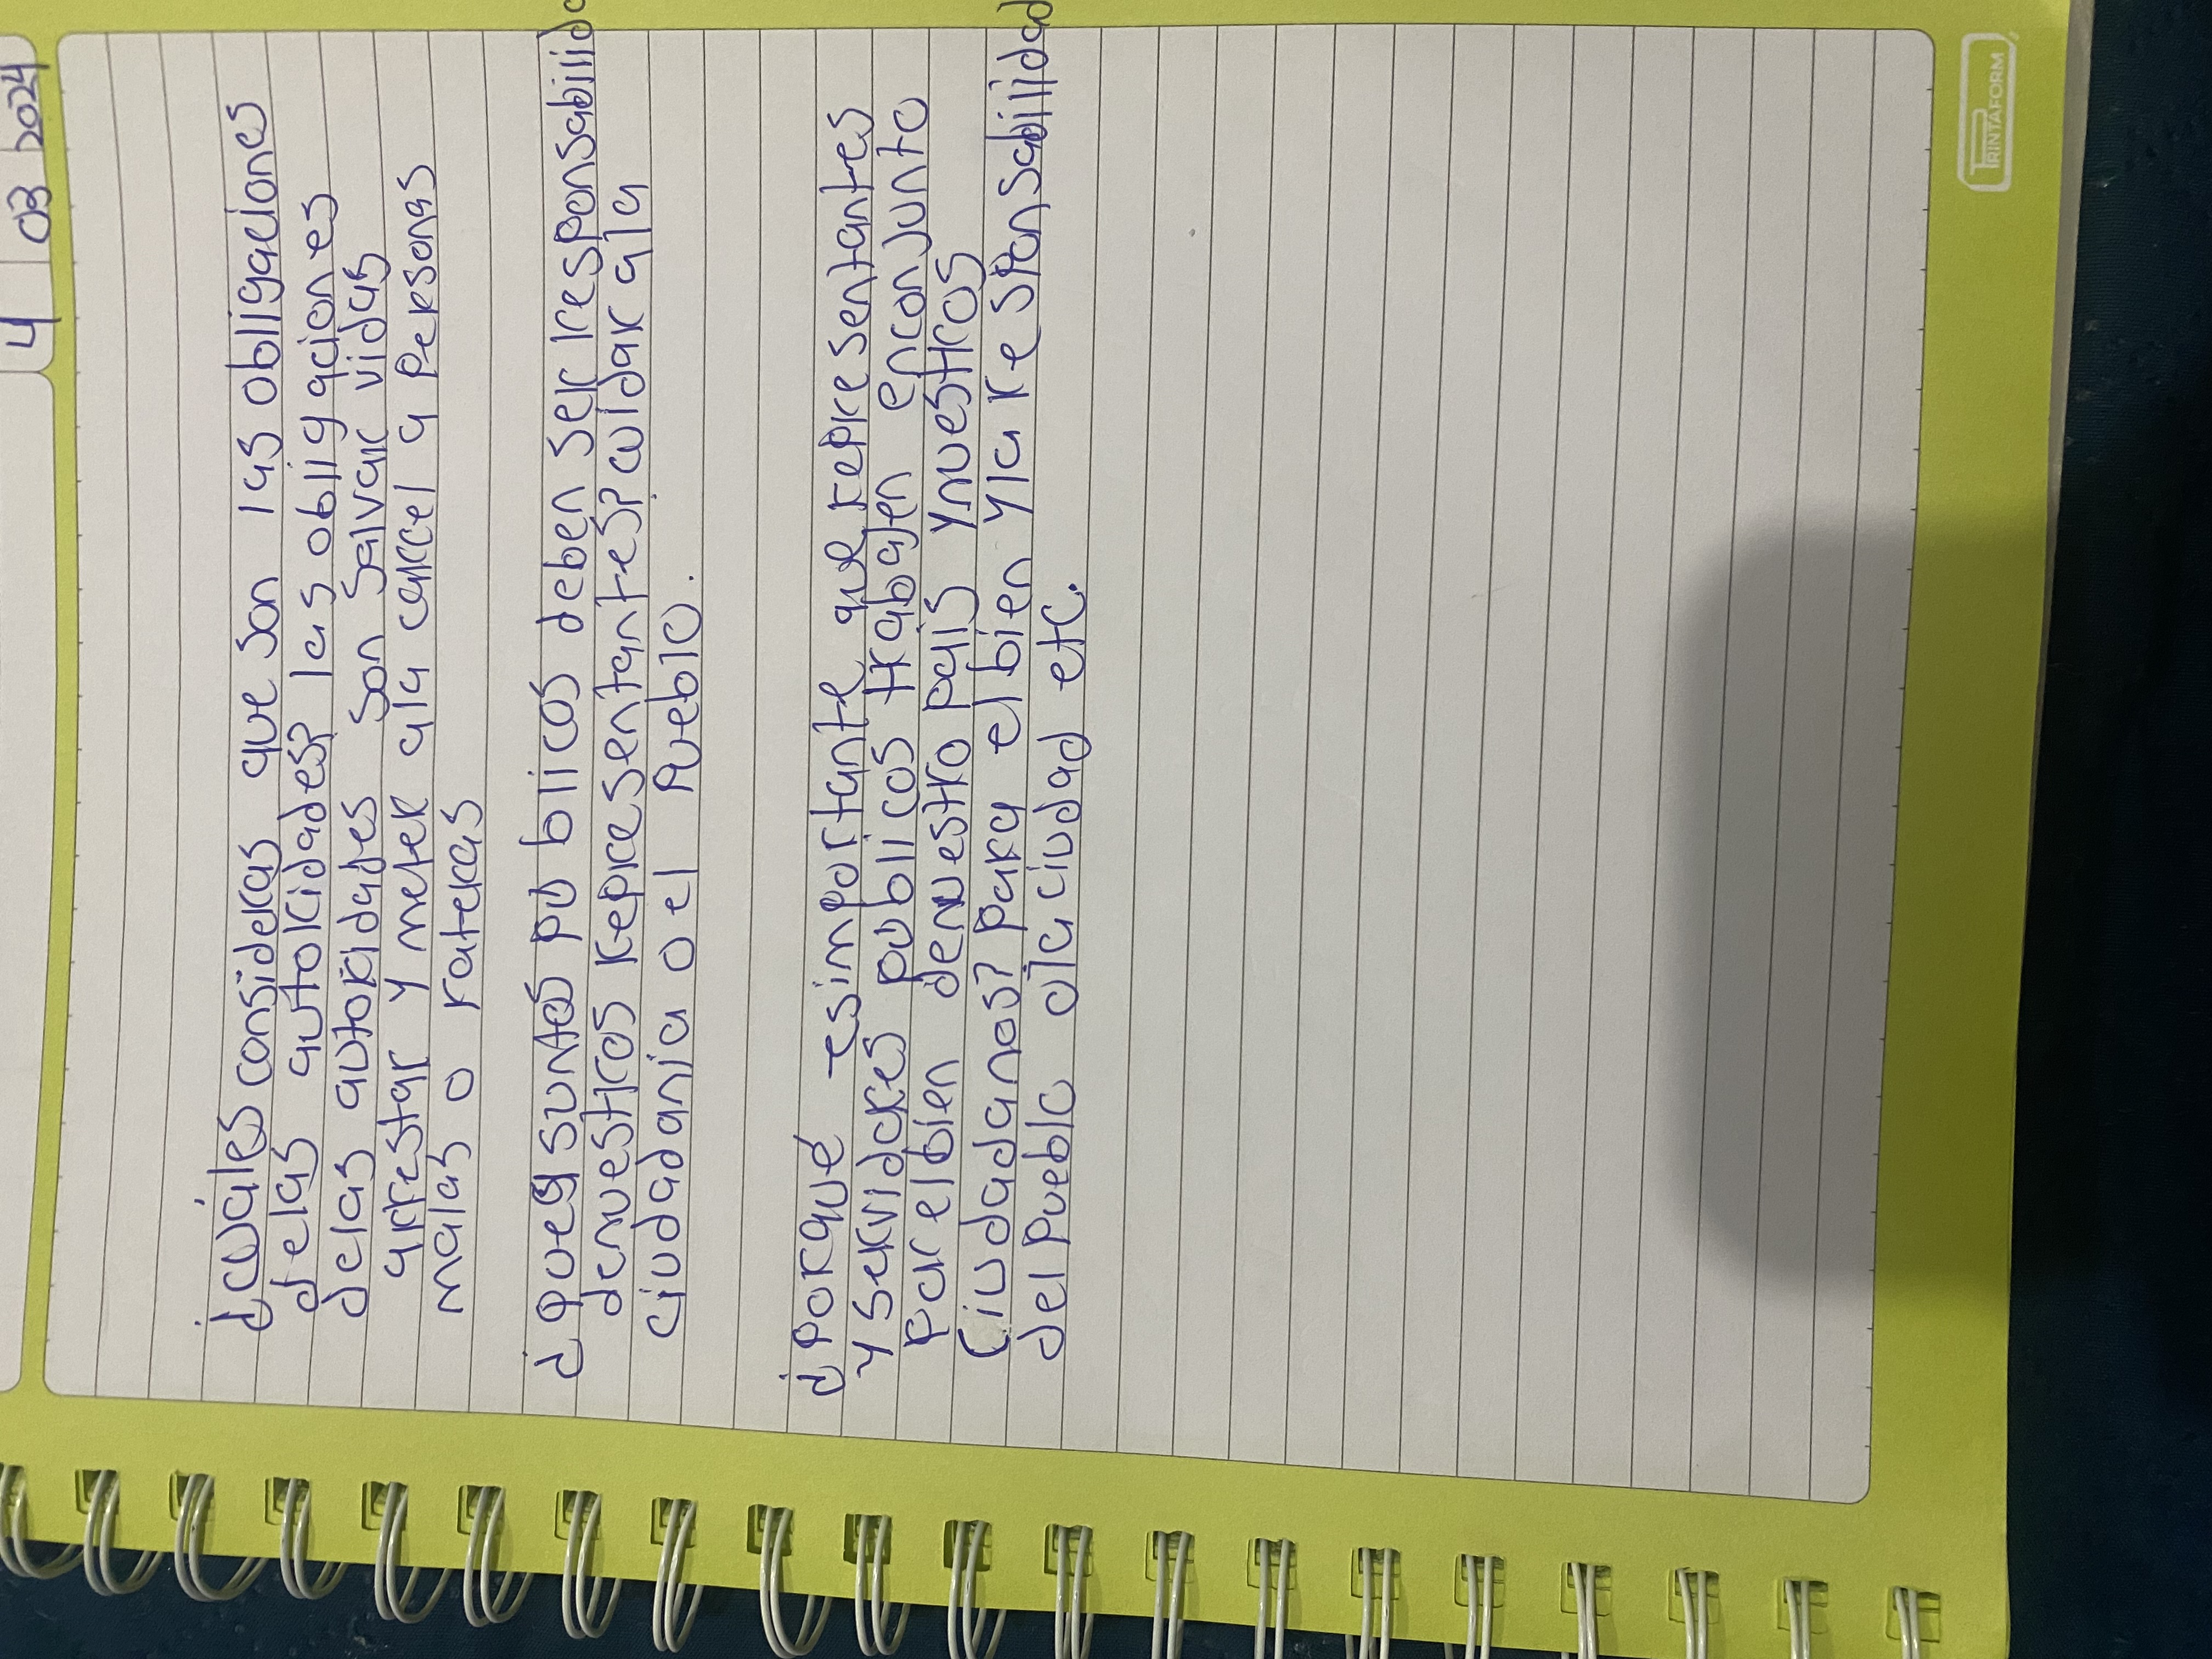 4 03 2024
¿cuáles consideras que son las obligaciones
delas autoridades? las obligaciones
delas autoridades son salvar vidas
arrestar y meter ala carcel a personas
malas o rateras
¿que asuntos publicos deben ser responsabilidad
denuestros representantes? cuidar ala
ciudadania o el pueblo.
¿porqué esimportante que representantes
y servidores publicos trabajen enconjunto
parelbien denuestro pais ynuestros
Ciudadanos? para el bien yla responsabilidad
del pueblo ola ciudad etc.
PRINTAFORM